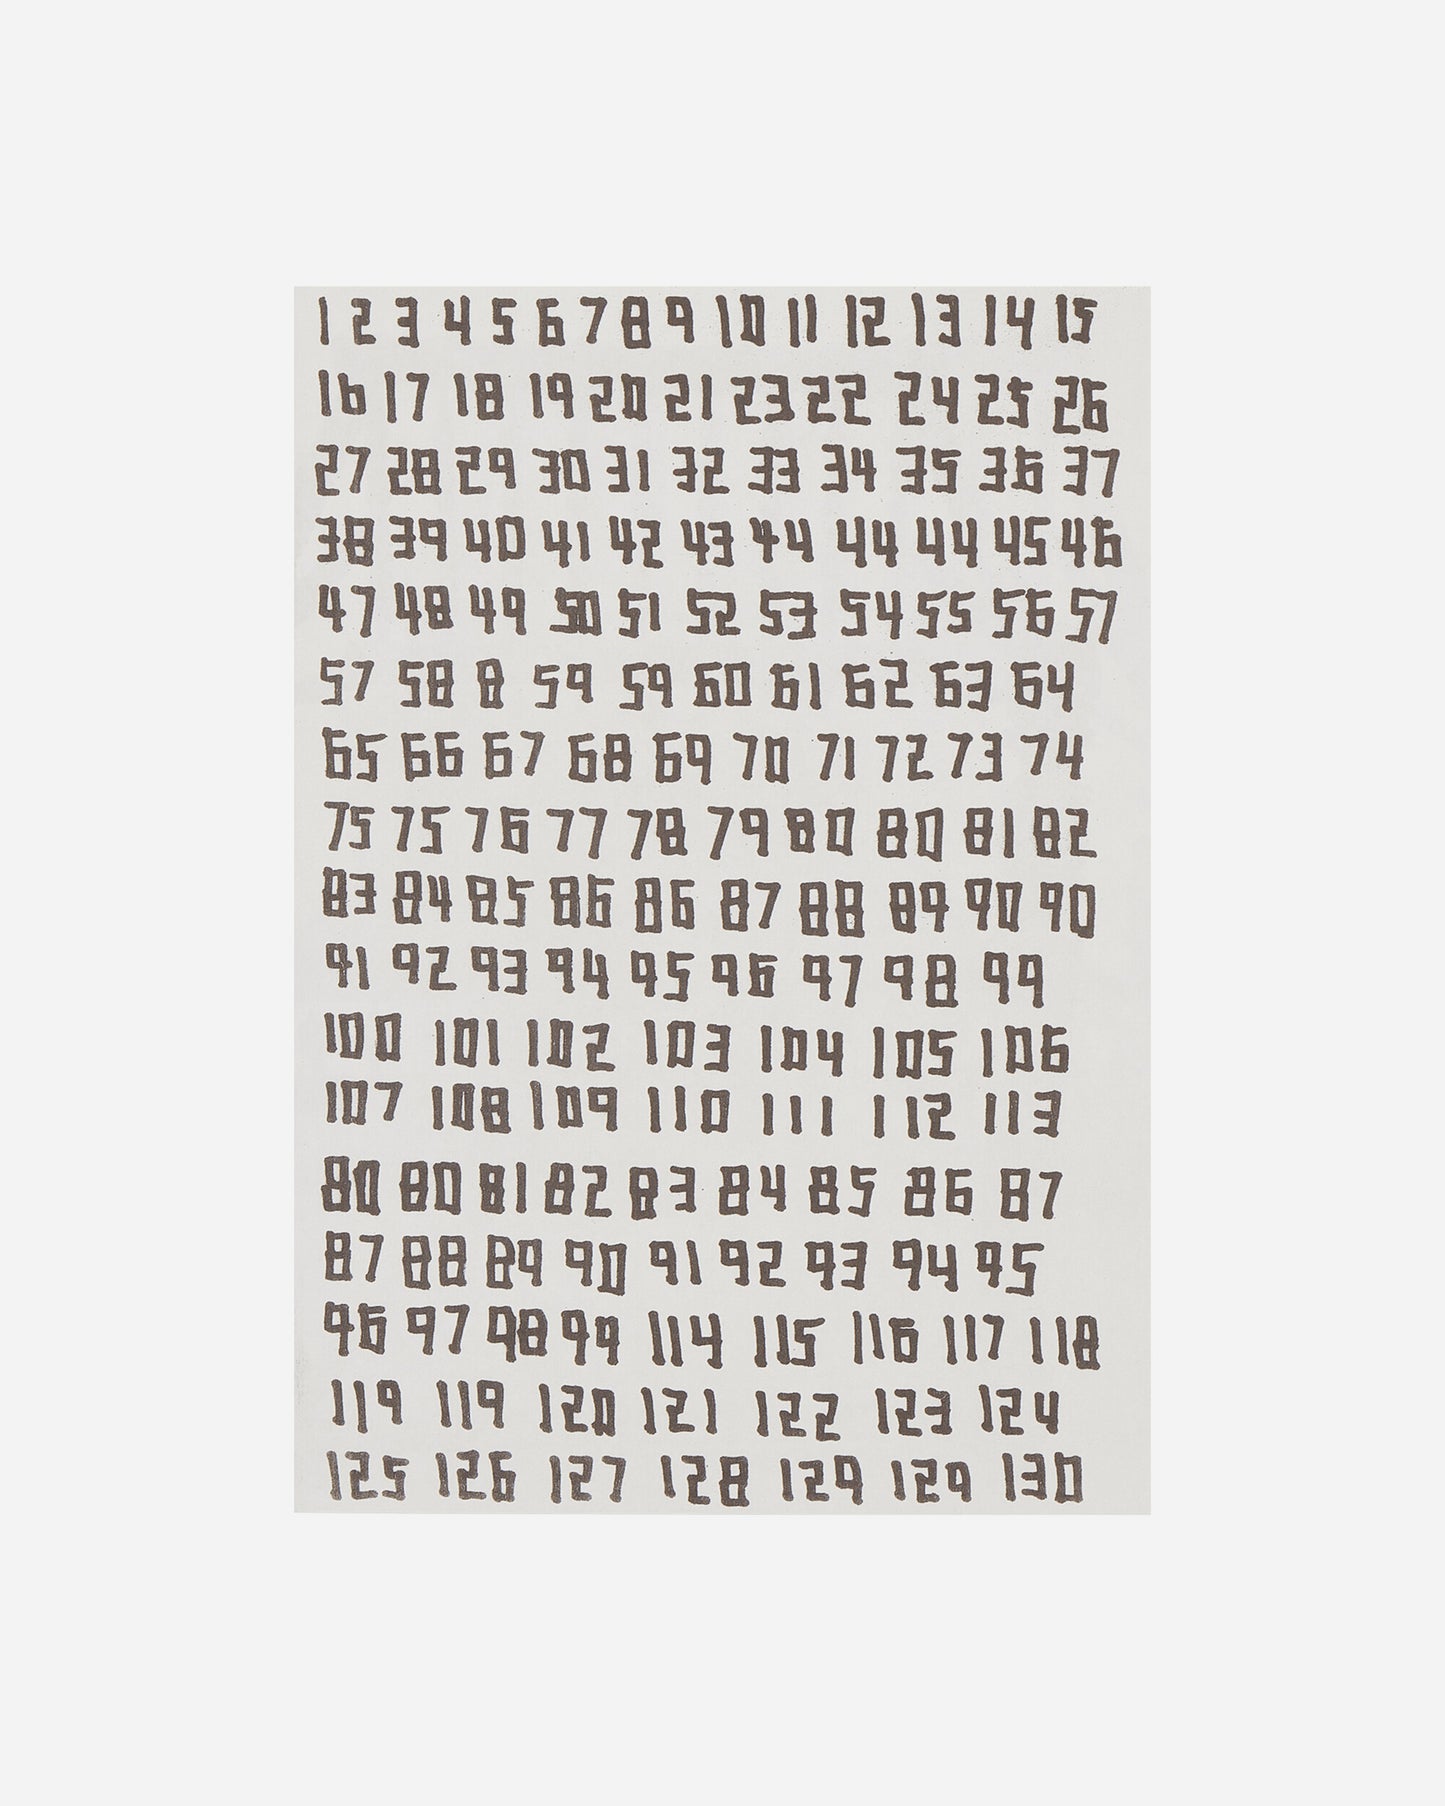 1 2 3 4 5 6 7 8 9 10 11 12 13 14 15
16 17 18 19 20 21 23 22 24 25 26
27 28 29 30 31 32 33 34 35 36 37
38 39 40 41 42 43 44 44 44 45 46
47 48 49 50 51 52 53 54 55 56 57
57 58 8 59 59 60 61 62 63 64
65 66 67 68 69 70 71 72 73 74
75 75 76 77 78 79 80 80 81 82
83 84 85 86 86 87 88 89 90 90
91 92 93 94 95 96 97 98 99
100 101 102 103 104 105 106
107 108 109 110 111 112 113
80 80 81 82 83 84 85 86 87
87 88 89 90 91 92 93 94 95
96 97 98 99 114 115 116 117 118
119 119 120 121 122 123 124
125 126 127 128 129 129 130